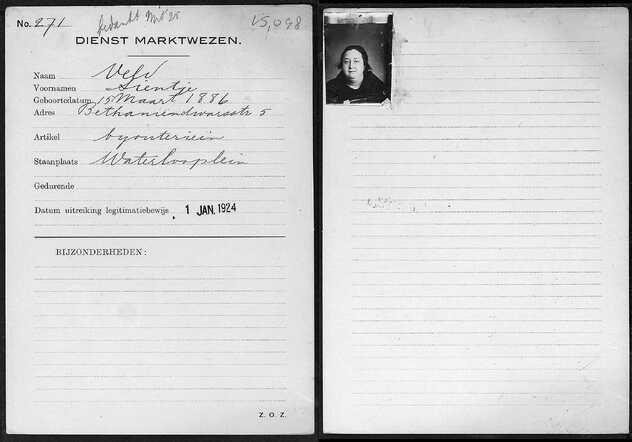 No. 271
bedankt
15,098
DIENST MARKTWEZEN.
Naam Veld
Voornamen Sientje
Geboortedatum 15 Maart 1886
Adres Bethaniendwarsstr 5
Artikel byouterieën
Staanplaats Waterlooplein
Gedurende
Datum uitreiking legitimatiebewijs 1 JAN. 1924
BIJZONDERHEDEN:
Z. O. Z.